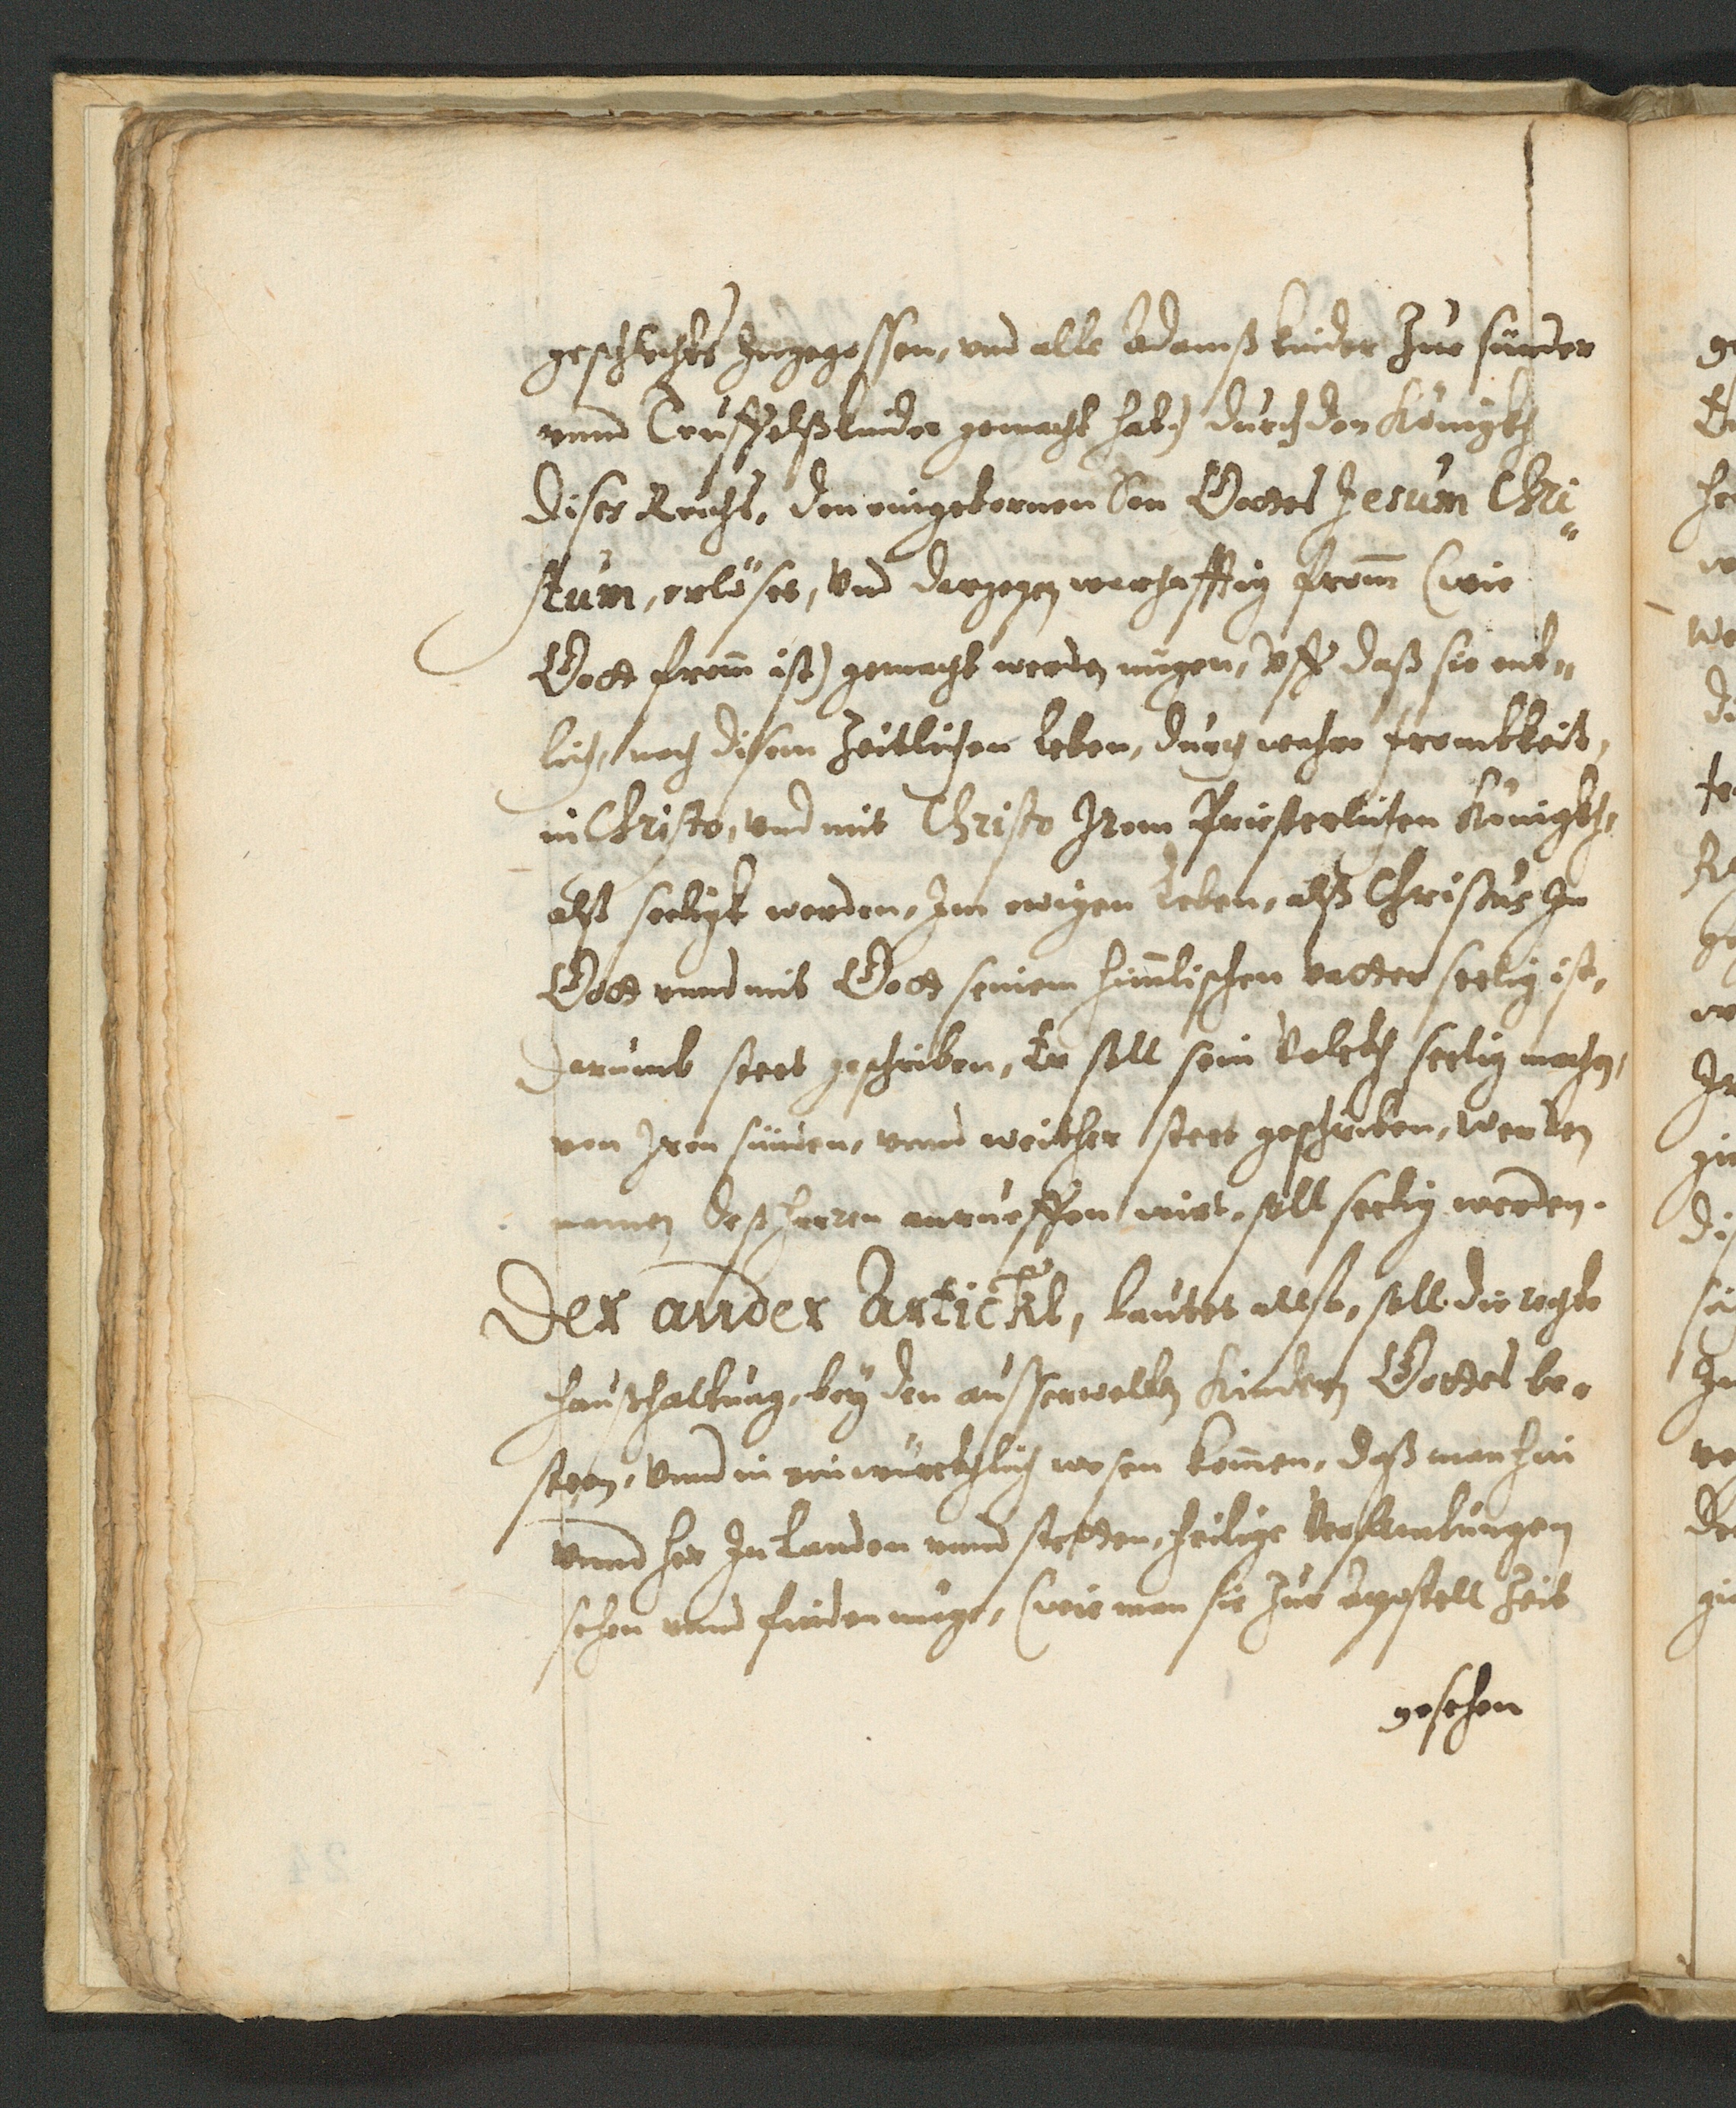 geschlechts Ingegossen, vnd alle Adamß kinder Zur sünder
vnnd Teuffelß kinder gemacht hab,) durch den Königkh
Dises Reichs, den eingebornen Son Gottes Jesum Chri„
stum, erlöset, vnd dargegen warhafftig from̄ (wie
Gott from̄ ist) gemacht werden mügen, Vff daß sie ent„
lich, nach disem Zeitlichen leben, durch wahre fromkheit,
in Christo, vnd mit Christo Irem Priesterlichen Königkh,
alß seeligk werden, Im ewigen Leben, alß Christus In
Gott vnnd mit Gott seinem him̄lischen vatter seelig ist,
Darumb steet geschriben, Er soll sein Volckh seelig machen,
von Iren sünden, vnnd weither steet geschriben, Wer den
namen deß Herren anrueffen wirt, soll seelig werden.
Der ander Artickl, lautet allso, soll die rechte
haußhaltung, bey den ausserwelten Kindern Gottes be„
steen, vnnd in ein würckhlich wesen kom̄en, daß man hin
vnnd her In Landen vnnd stetten, heilige Versamlungen
sehen vnnd finden müge, (wie man sie Zur Apostell Zeit
gesehen